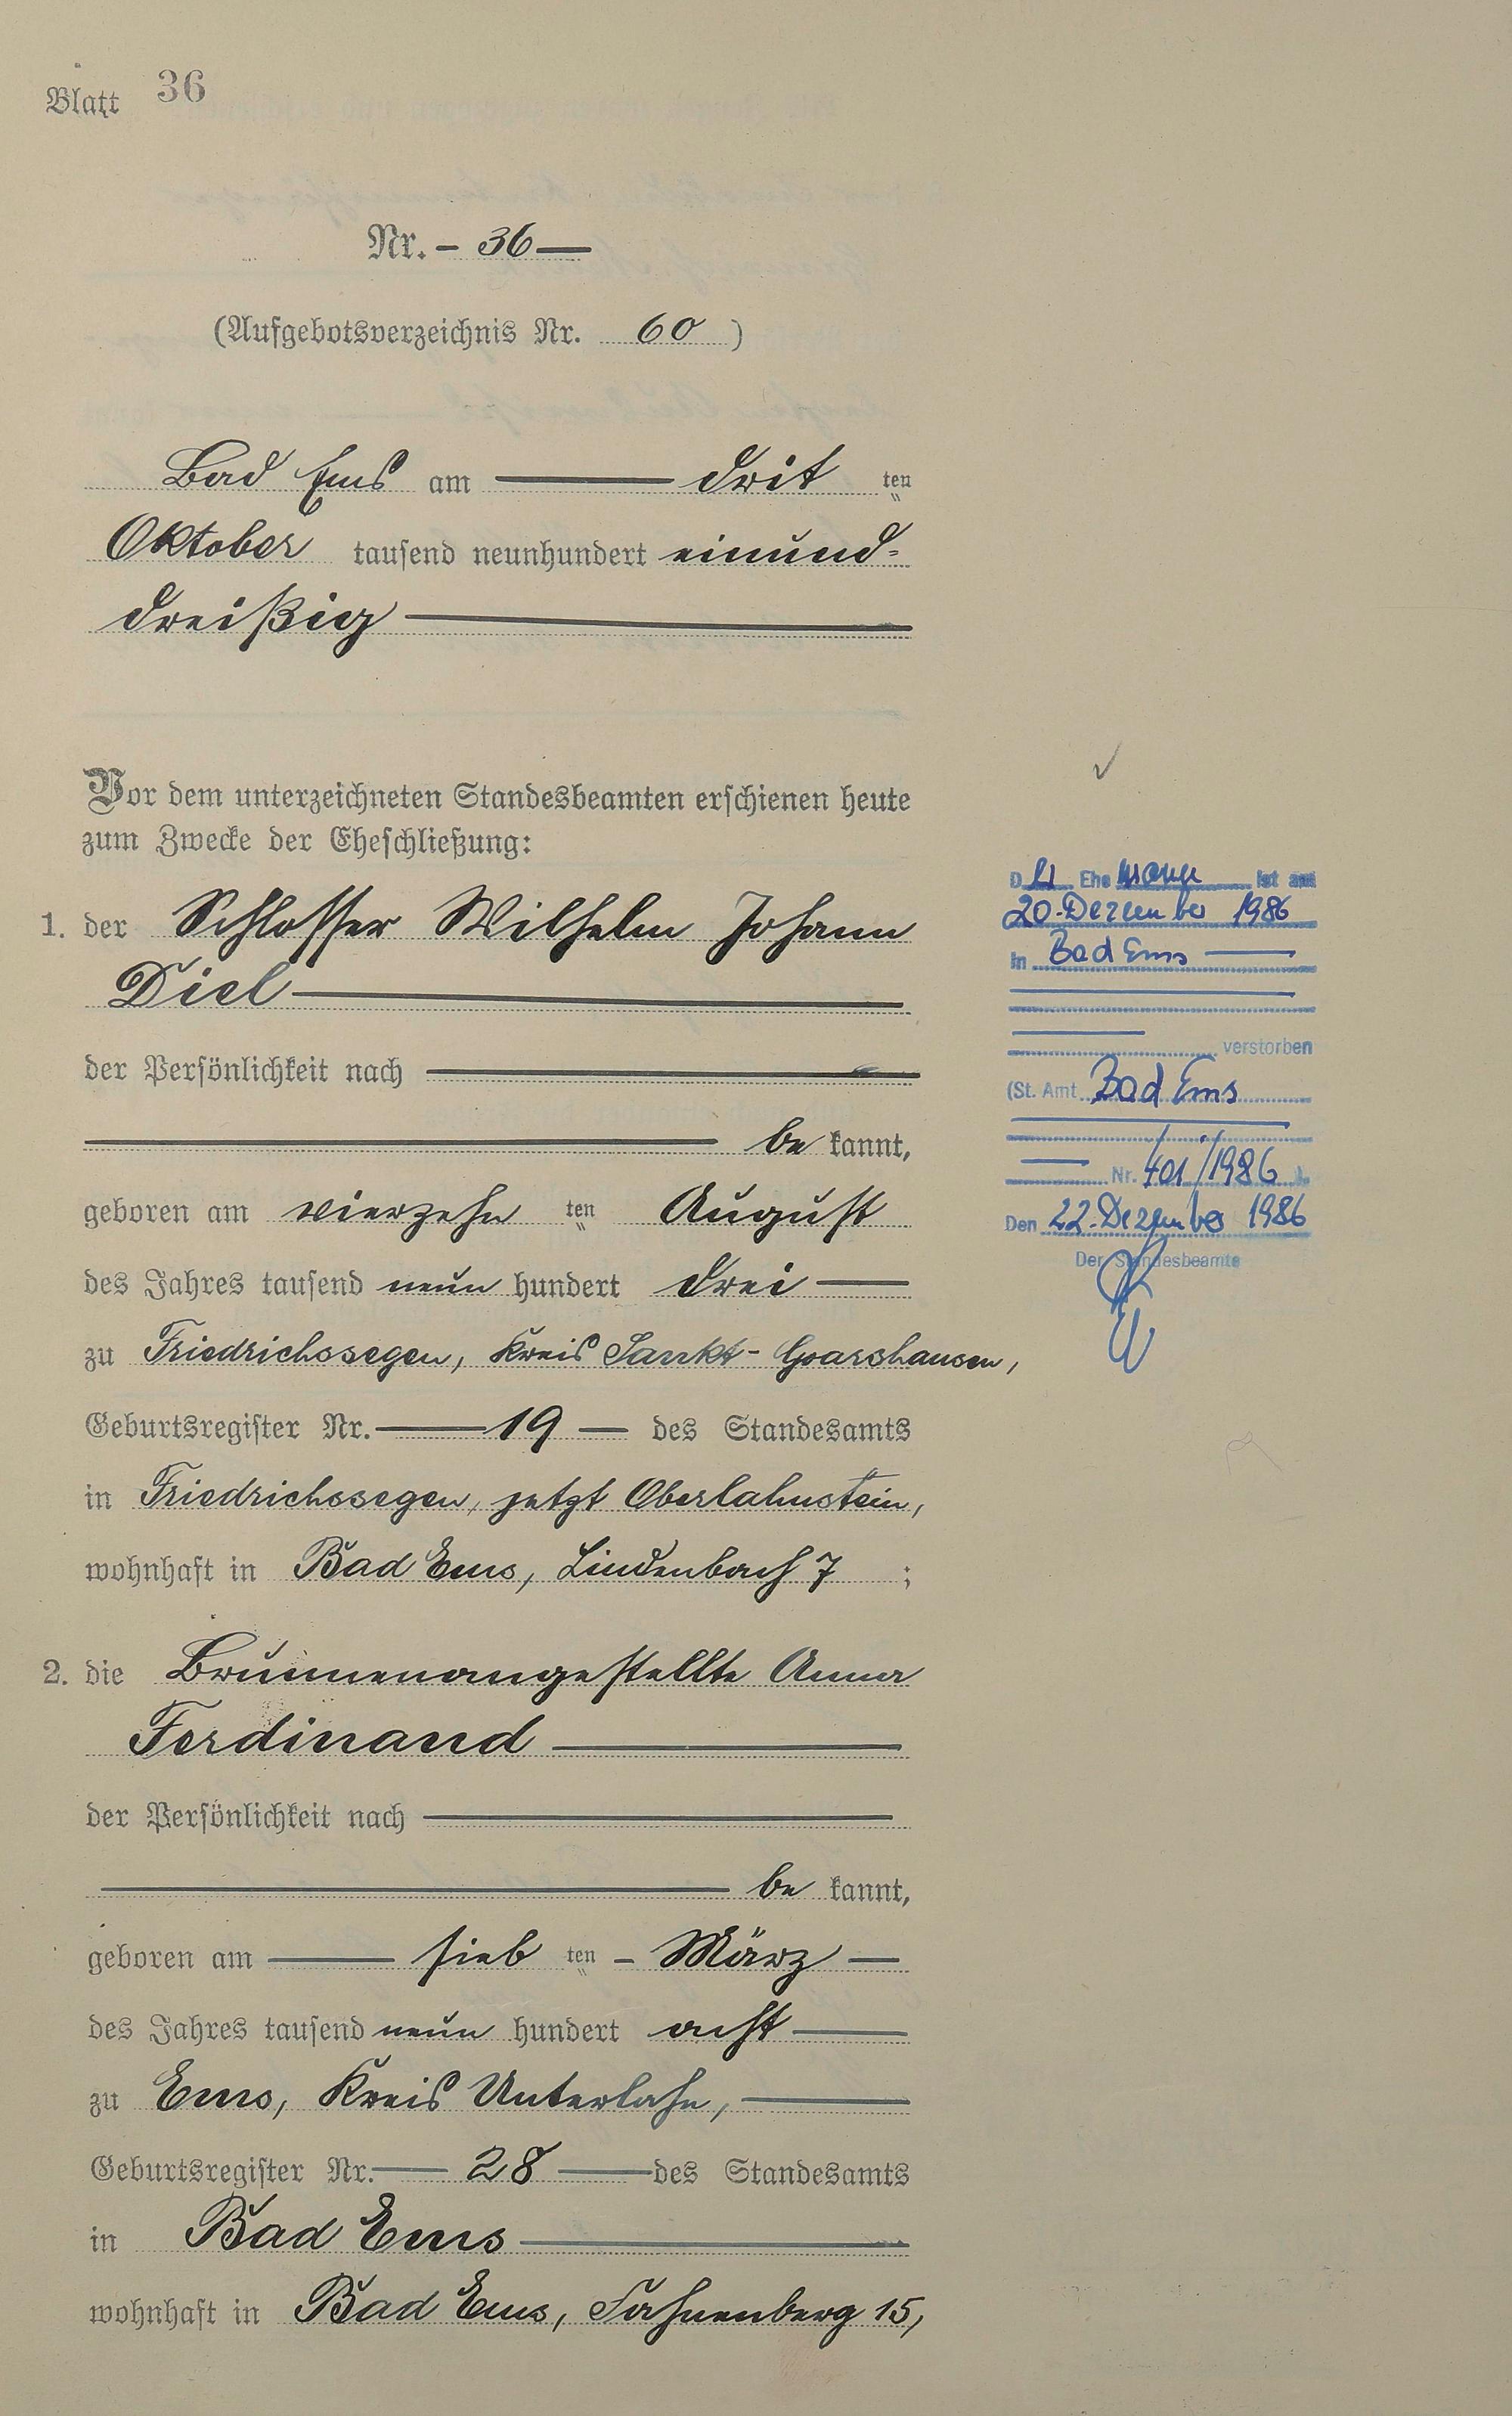 Blatt 36
Nr. - 36 —
(Aufgebotsverzeichnis Nr. 60 )
Bad Ems am — drit ten
Oktober tausend neunhundert einund-
dreißig —
Vor dem unterzeichneten Standesbeamten erschienen heute
zum Zwecke der Eheschließung:
1. der Schlosser Wilhelm Johann
Diel —
der Persönlichkeit nach —
— be kannt,
geboren am vierzehn ten August
des Jahres tausend neun hundert drei —
zu Friedrichssegen, Kreis Sankt-Goarshausen,
Geburtsregister Nr. — 19 — des Standesamts
in Friedrichssegen, jetzt Oberlahnstein,
wohnhaft in Bad Ems, Lindenbach 7 ;
2. die Brunnenangestellte Anna
Ferdinand —
der Persönlichkeit nach —
— be kannt,
geboren am — sieb ten - März —
des Jahres tausend neun hundert acht —
zu Ems, Kreis Unterlahn, —
Geburtsregister Nr. — 28 — des Standesamts
in Bad Ems —
wohnhaft in Bad Ems, Fahnenberg 15,
Der Ehemann ist am
20. Dezember 1986
in Bad Ems —
verstorben
(St. Amt Bad Ems
Nr. 401/1986 ).
Den 22. Dezember 1986
Der Standesbeamte